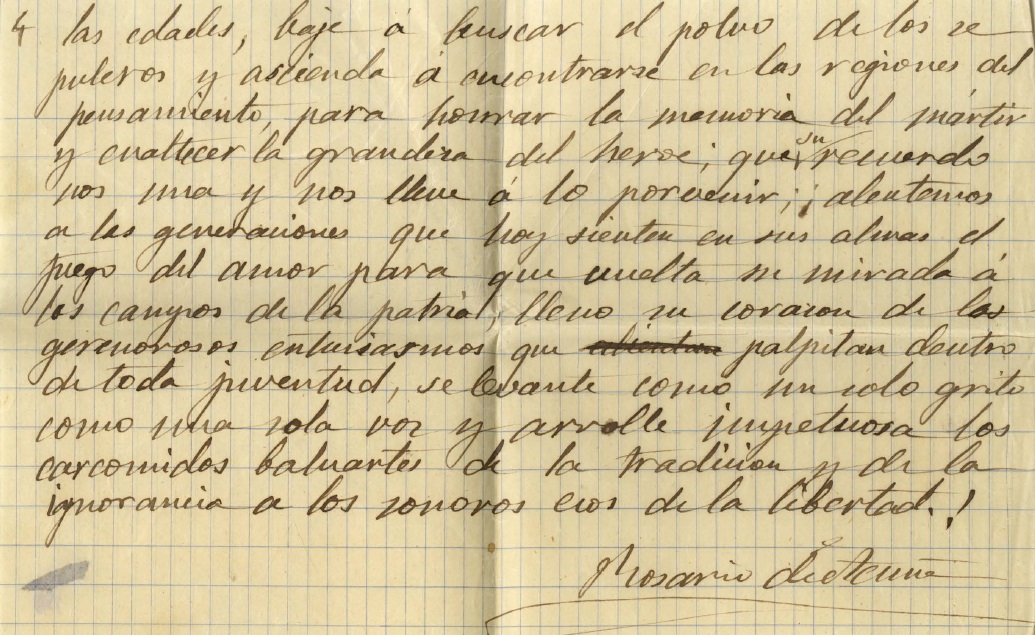 4 las edades, baje á buscar el polvo de los se
pulcros y ascienda á encontrarse en las regiones del
pensamiento, para honrar la memoria del mártir
y enaltecer la grandeza del heroe; que su recuerdo
nos una y nos lleve á lo porvenir; ¡alentemos
a las generaciones que hoy sienten en sus almas el
fuego del amor para que vuelta su mirada á
los campos de la patria, lleno su corazon de los
generorosos entusiasmos que palpitan dentro
de toda juventud, se levante como un solo grito
como una sola voz y arrolle impetuosa los
carcomidos baluartes de la tradicion y de la
ignorancia a los sonoros ecos de la libertad.!
Rosario de Acuña